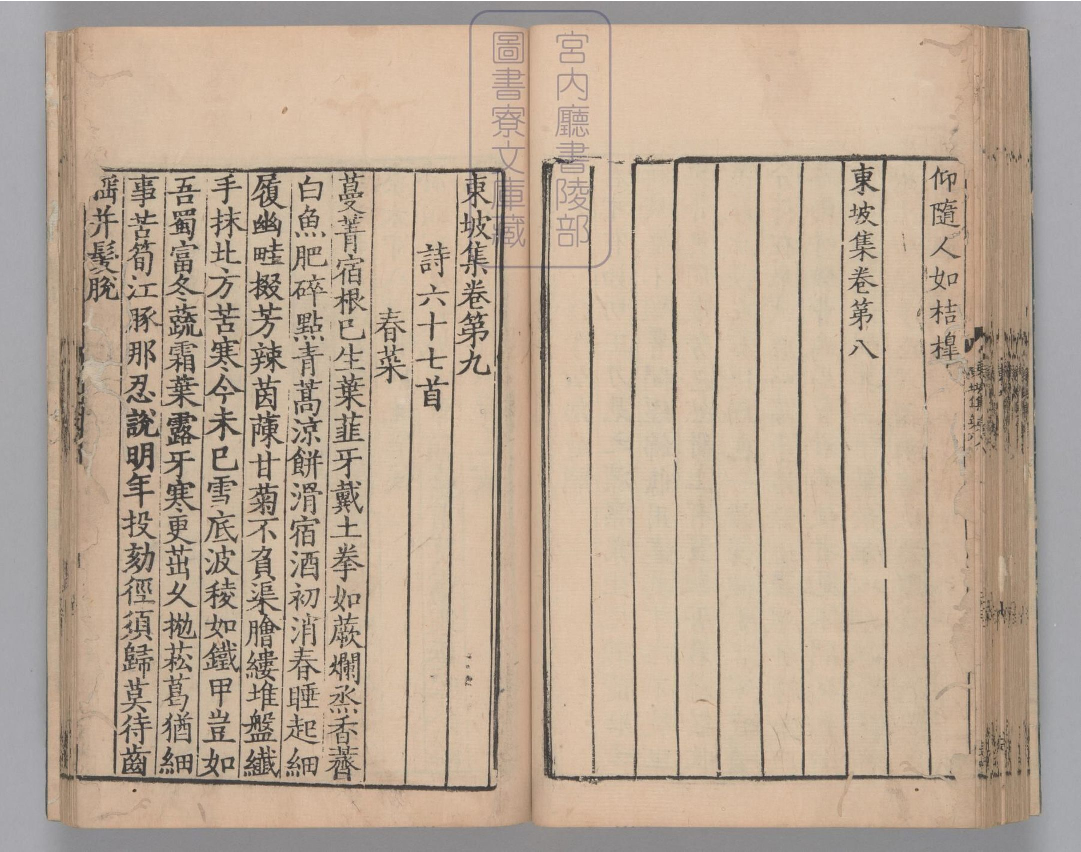 宮内廳書陵部
圖書寮文庫藏
仰隨人如桔槹
東坡集卷第八
東坡集卷第九
詩六十七首
春菜
蔓菁宿根已生葉韭牙戴土拳如蕨爛烝香薺
白魚肥碎點青蒿涼餅滑宿酒初消春睡起細
履幽畦掇芳辣茵蔯甘菊不負渠膾縷堆盤纖
手抹北方苦寒今未已雪底波稜如鐵甲豈如
吾蜀富冬蔬霜葉露牙寒更茁久抛菘葛猶細
事苦筍江豚那忍說明年投劾徑須歸莫待齒
揺并髮脫